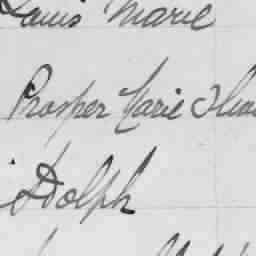 Louis Marie
Prosper Marie
Adolph